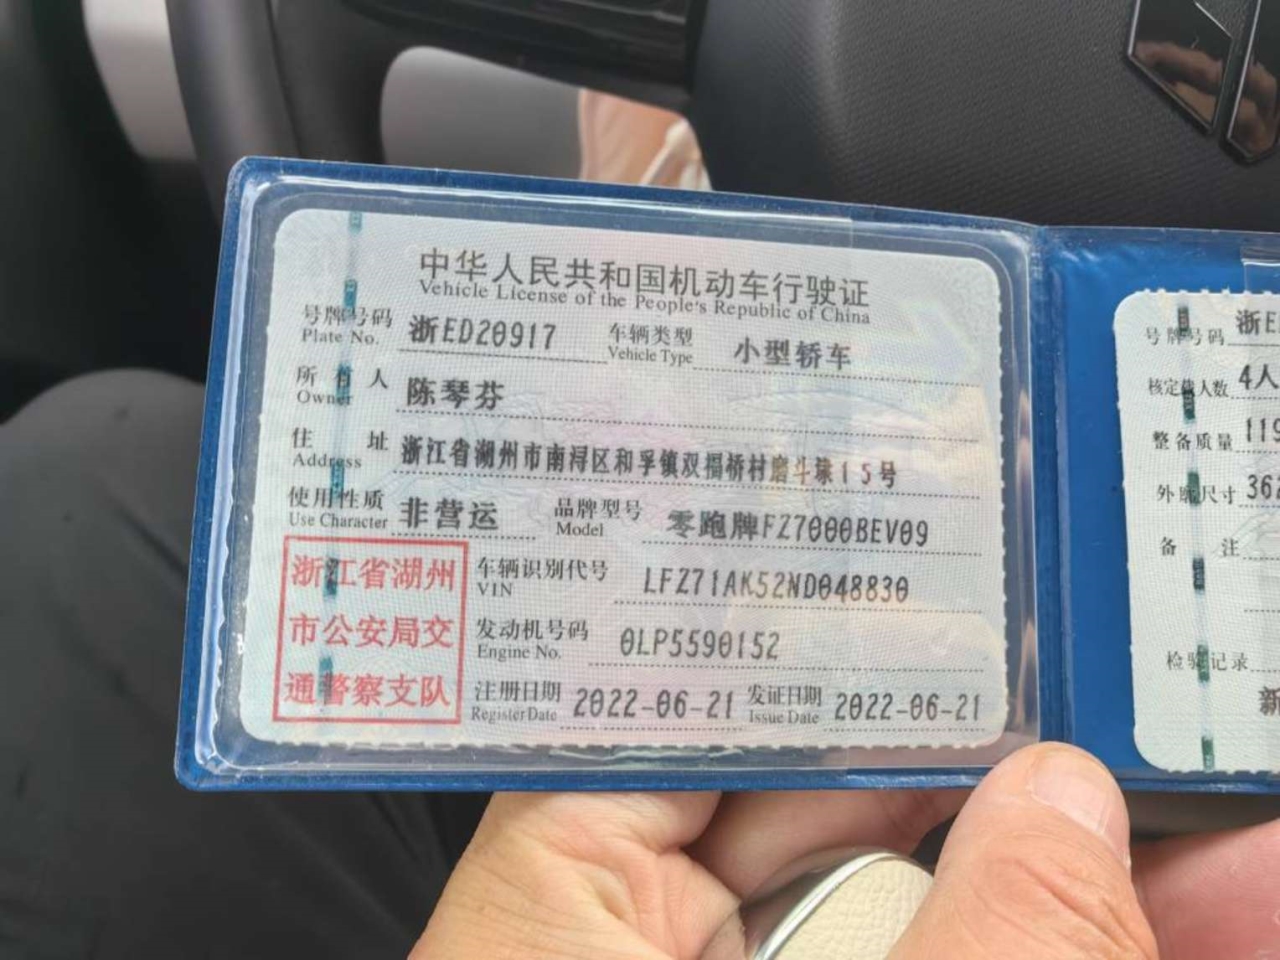 中华人民共和国机动车行驶证
Vehicle License of the People's Republic of China
号牌号码 浙ED20917 车辆类型 小型轿车
Plate No. Vehicle Type
所有人 陈琴芬
Owner
住址 浙江省湖州市南浔区和孚镇双福桥村磨斗㘰15号
Address
使用性质 非营运 品牌型号 零跑牌FZ7000BEV09
Use Character Model
车辆识别代号 LFZ71AK52ND048830
VIN
发动机号码 0LP5590152
Engine No.
注册日期 2022-06-21 发证日期 2022-06-21
Register Date Issue Date
浙江省湖州
市公安局交
通警察支队
号牌号码 浙E
核定载人数 4人
整备质量 119
外廓尺寸 362
备注
检验记录
新